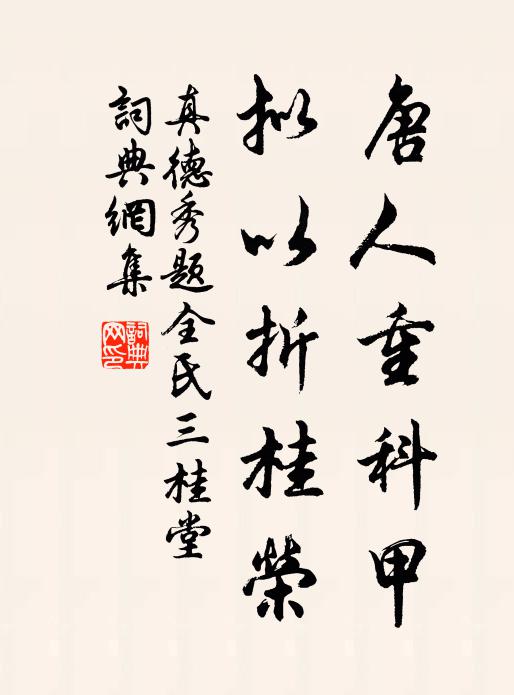 唐人重科甲
拟以折桂榮
真德秀题全氏三桂堂
詞典網集
詞典网印